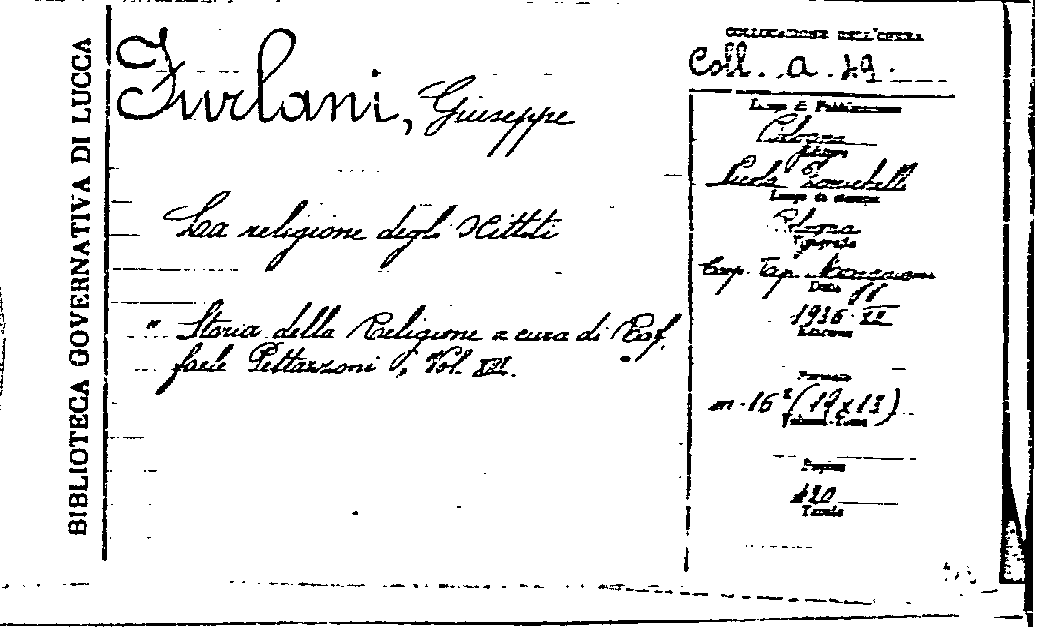 BIBLIOTECA GOVERNATIVA DI LUCCA
Furlani, Giuseppe
La religione degli Hittiti
" Storia della Religione a cura di Raf.
faele Pettazzoni", Vol. XIII.
COLLOCAZIONE DELL'OPERA
Coll. a. 79.
Luogo di Pubblicazione
Bologna
Editore
Zanichelli
Luogo di stampa
Bologna
Tipografia
Coop. Tip. Azzoguidi
Data
1936
Edizione
Formato
m-16° (19x13)
Volume-Tomo
Pagine
420
Tavole